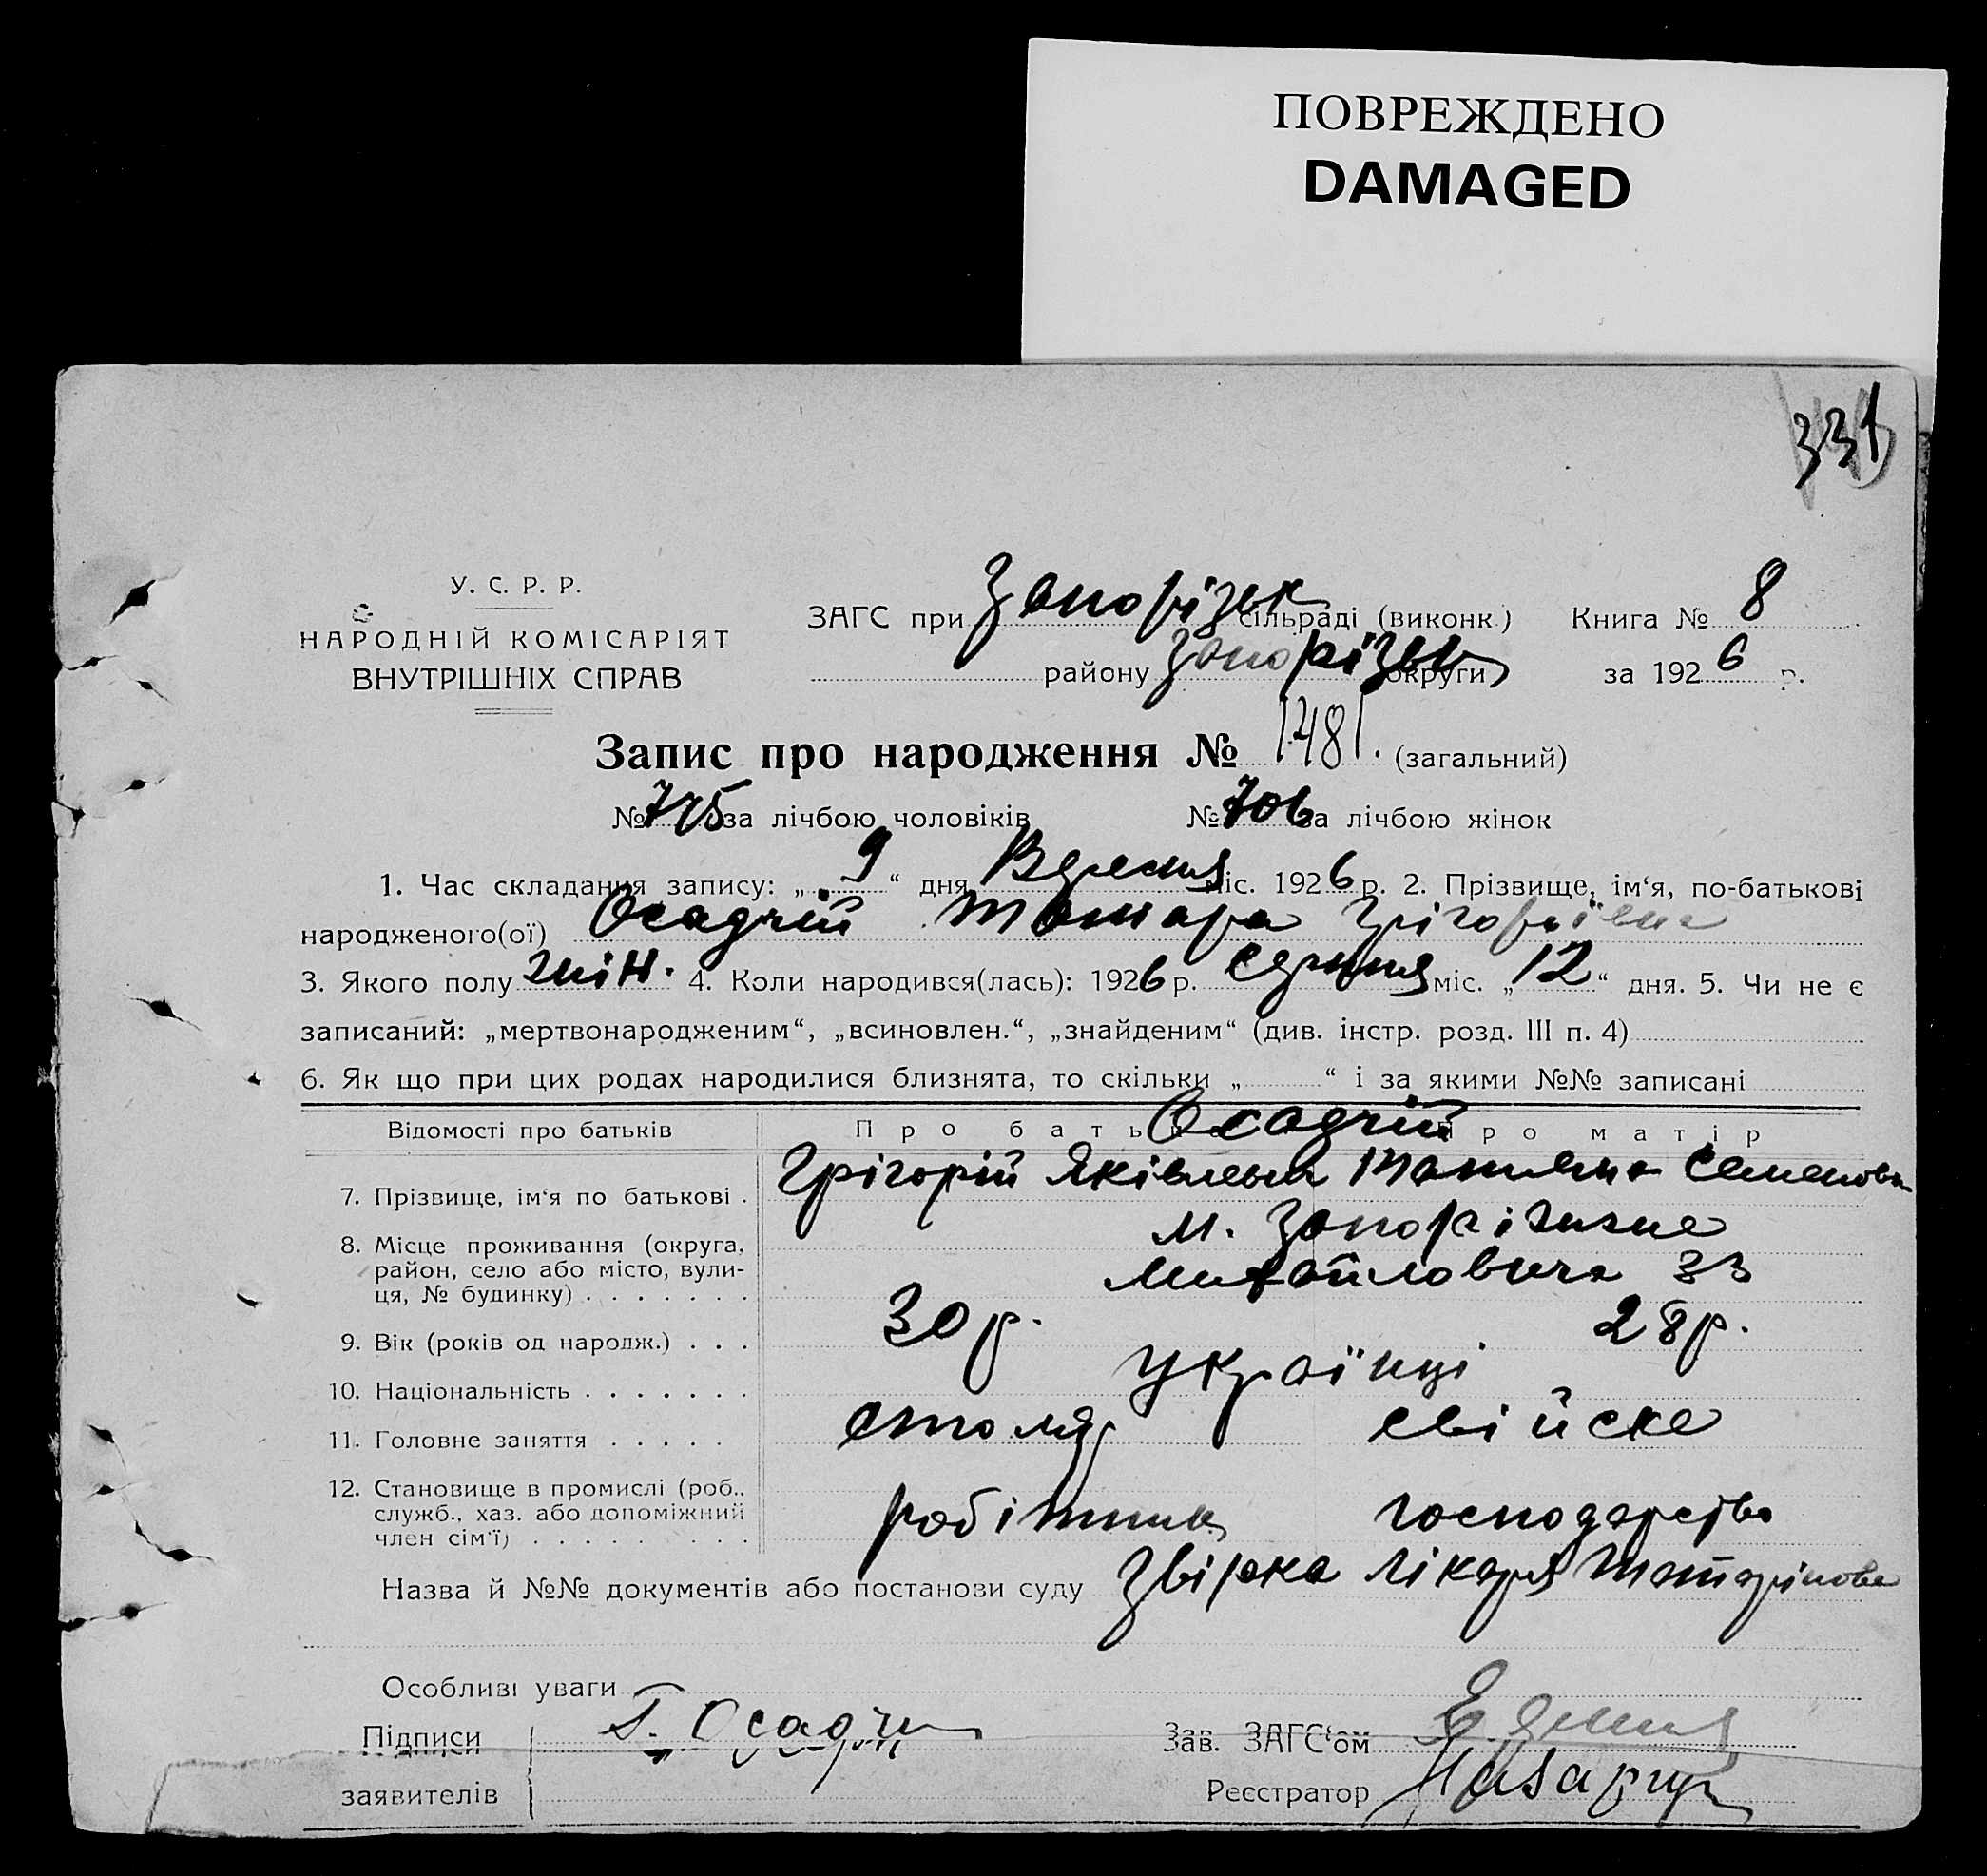 ПОВРЕЖДЕНО
DAMAGED
331
У. С. Р. Р.
НАРОДНІЙ КОМІСАРІЯТ
ВНУТРІШНІХ СПРАВ
ЗАГС при Запорізьк сільраді (виконк.) Книга № 8
району Запорізьк округи за 1926 р.
Запис про народження № 1481. (загальний)
№ 775 за лічбою чоловіків № 706 за лічбою жінок
1. Час складання запису: „ 9 “ дня Вересня міс. 1926 р. 2. Прізвище, ім‘я, по-батькові
народженого(ої) Осадчій Тамара Грігорьївна
3. Якого полу жін. 4. Коли народився(лась): 1926 р. серпня міс. „ 12 “ дня. 5. Чи не є
записаний: „мертвонародженим“, „всиновлен.“, „знайденим“ (див. інстр. розд. III п. 4)
6. Як що при цих родах народилися близнята, то скільки „ “ і за якими №№ записані
Відомості про батьків Про батька Про матір
Осадчій
7. Прізвище, ім‘я по батькові . Грігорій Яківлевич Татьяна Семеновна
м. Запоріжжє
8. Місце проживання (округа,
район, село або місто, вули-
ця, № будинку) . . . . . . . Михайловича 33
9. Вік (років од народж.) . . . 30 р. 28 р.
10. Національність . . . . . . . українці
11. Головне заняття . . . . . столяр свійске
12. Становище в промислі (роб.,
служб., хаз. або допоміжний
член сім‘ї) . . . . . . . . . робітник господарство
Назва й №№ документів або постанови суду лікаря
Особливі уваги
Підписи Г. Осадчий Зав. ЗАГС‘ом
заявителів Реєстратор